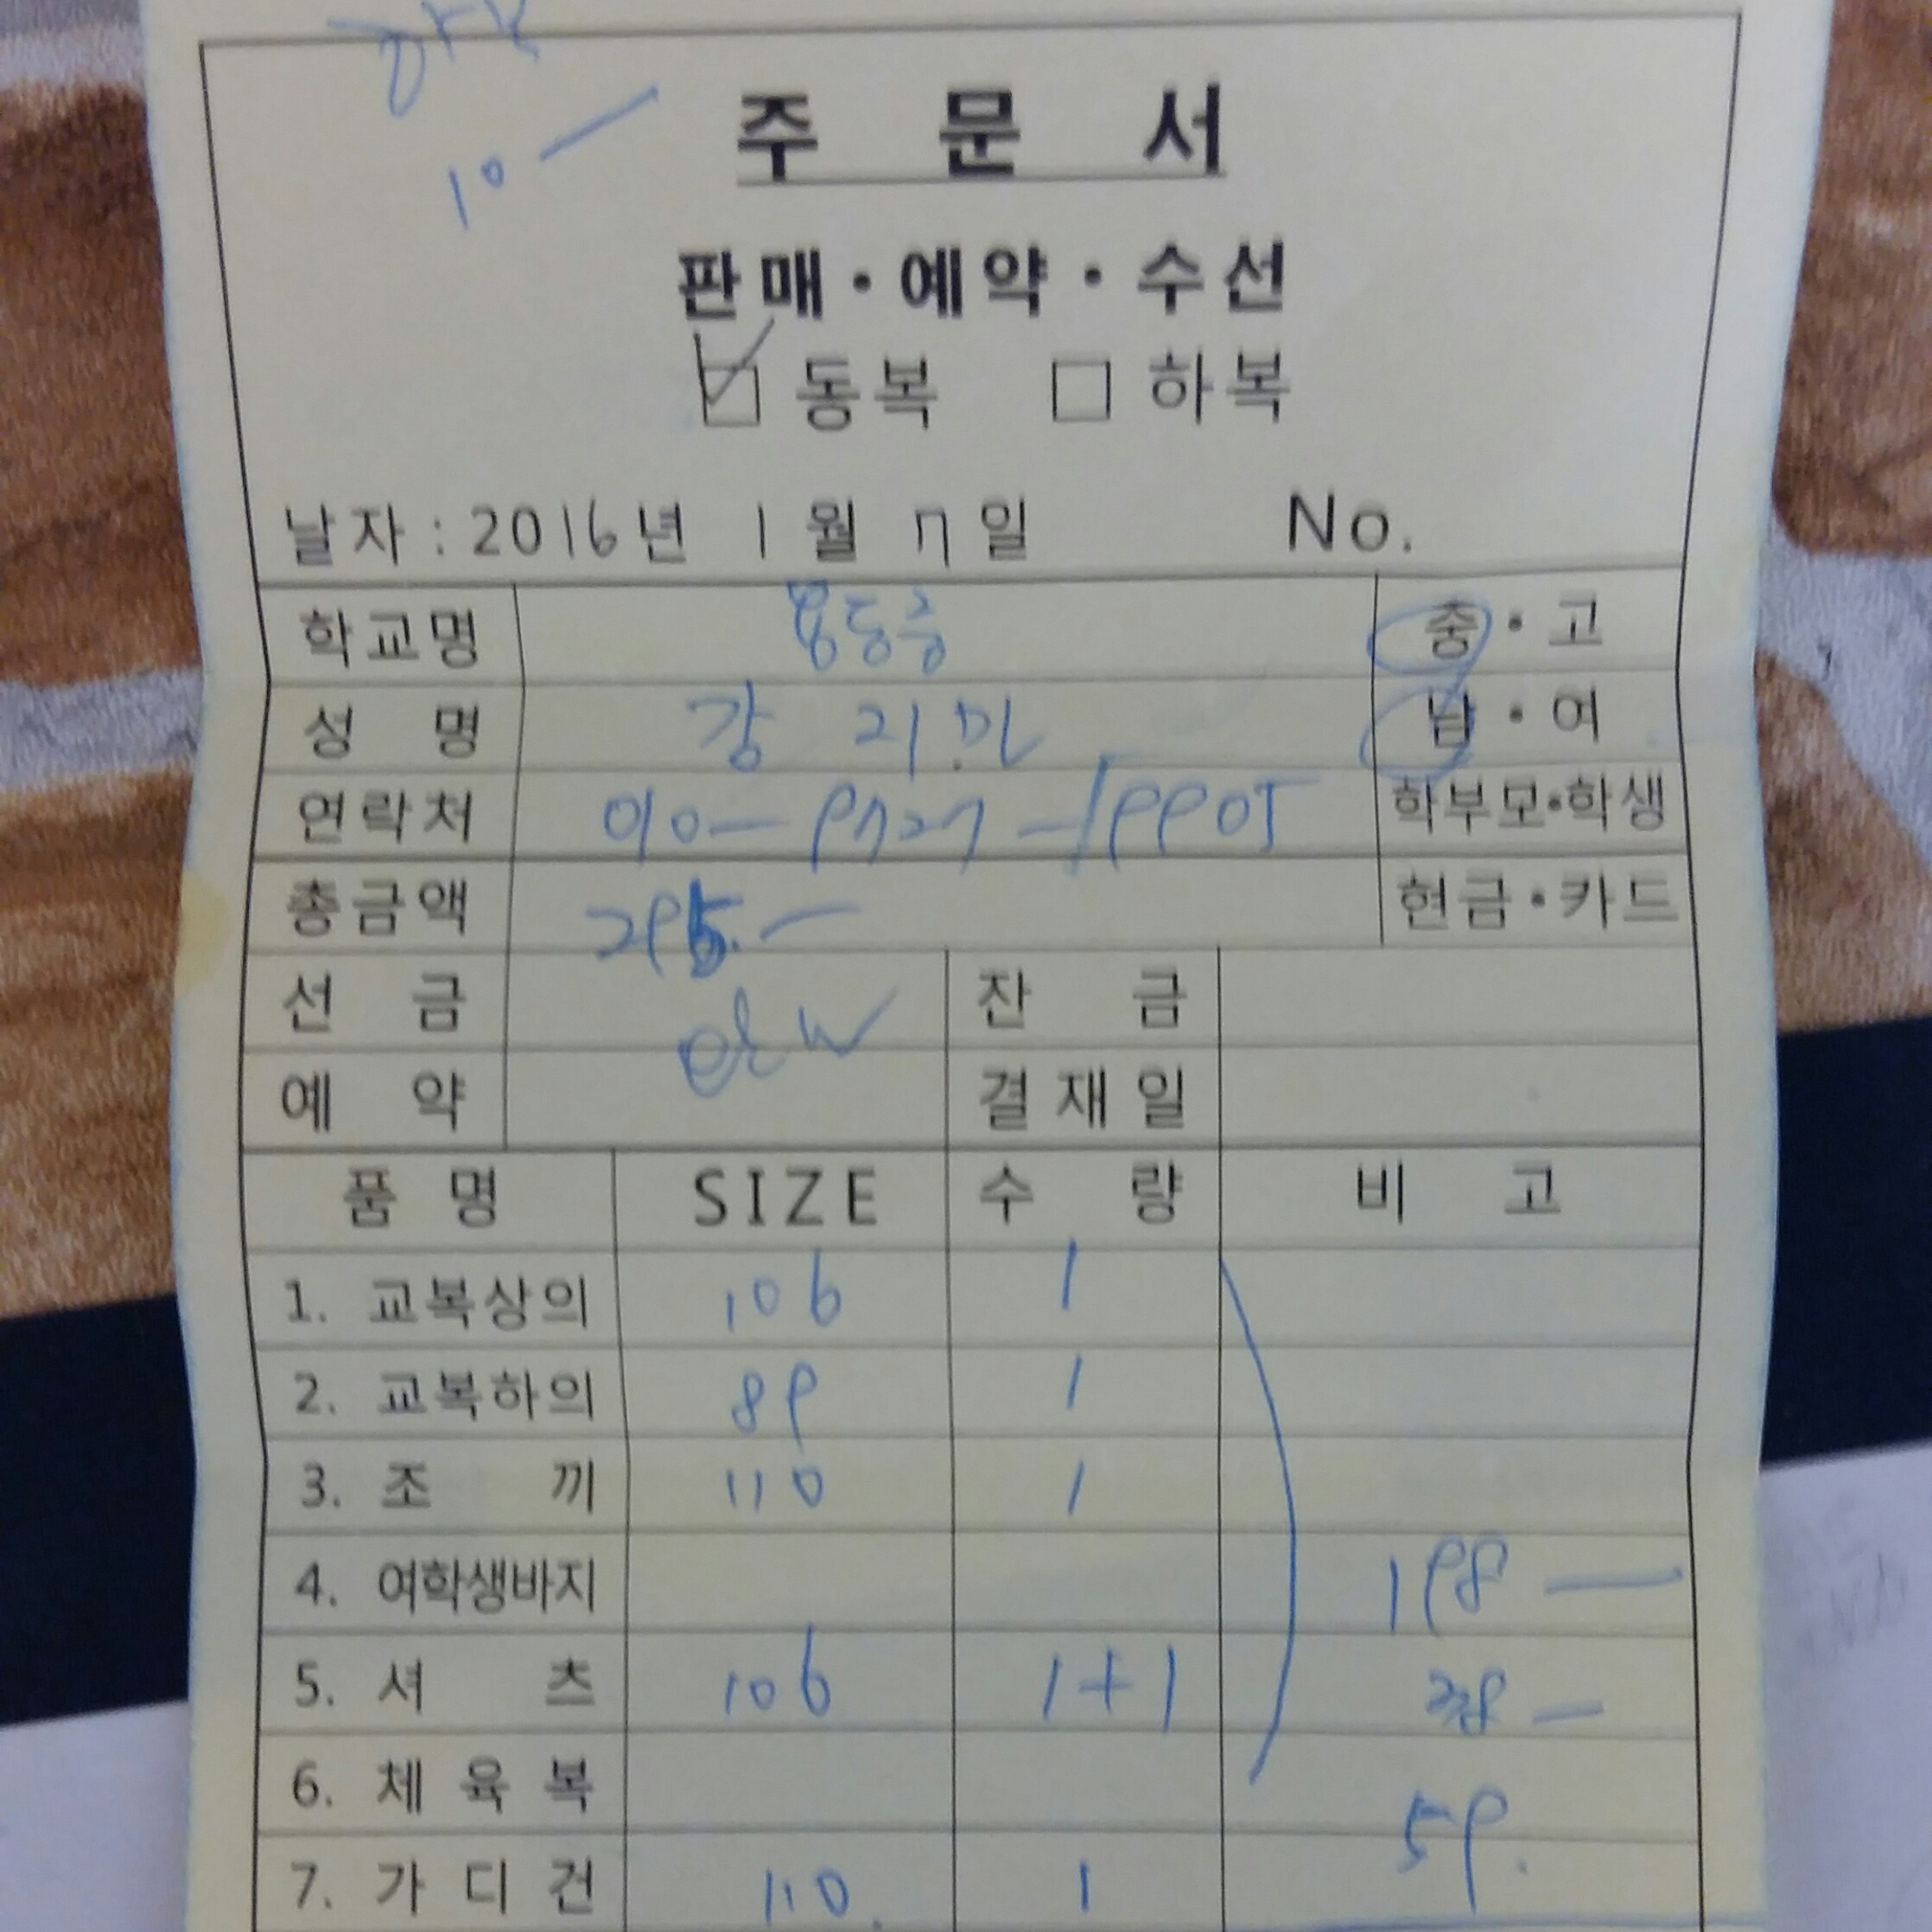 10 —
주 문 서
판매 · 예약 · 수선
동복 하복
날자 : 2016년 1월 17일 No.
학교명 중 · 고
성 명 강 남 · 여
연락처 010- 학부모·학생
총금액 295.— 현금·카드
선 금 완납 잔 금
예 약 결재일
품 명 SIZE 수 량 비 고
1. 교복상의 106 1
2. 교복하의 89 1
3. 조 끼 110 1
4. 여학생바지 198 —
5. 셔 츠 106 1+1 38 —
6. 체 육 복 59.
7. 가 디 건 110. 1